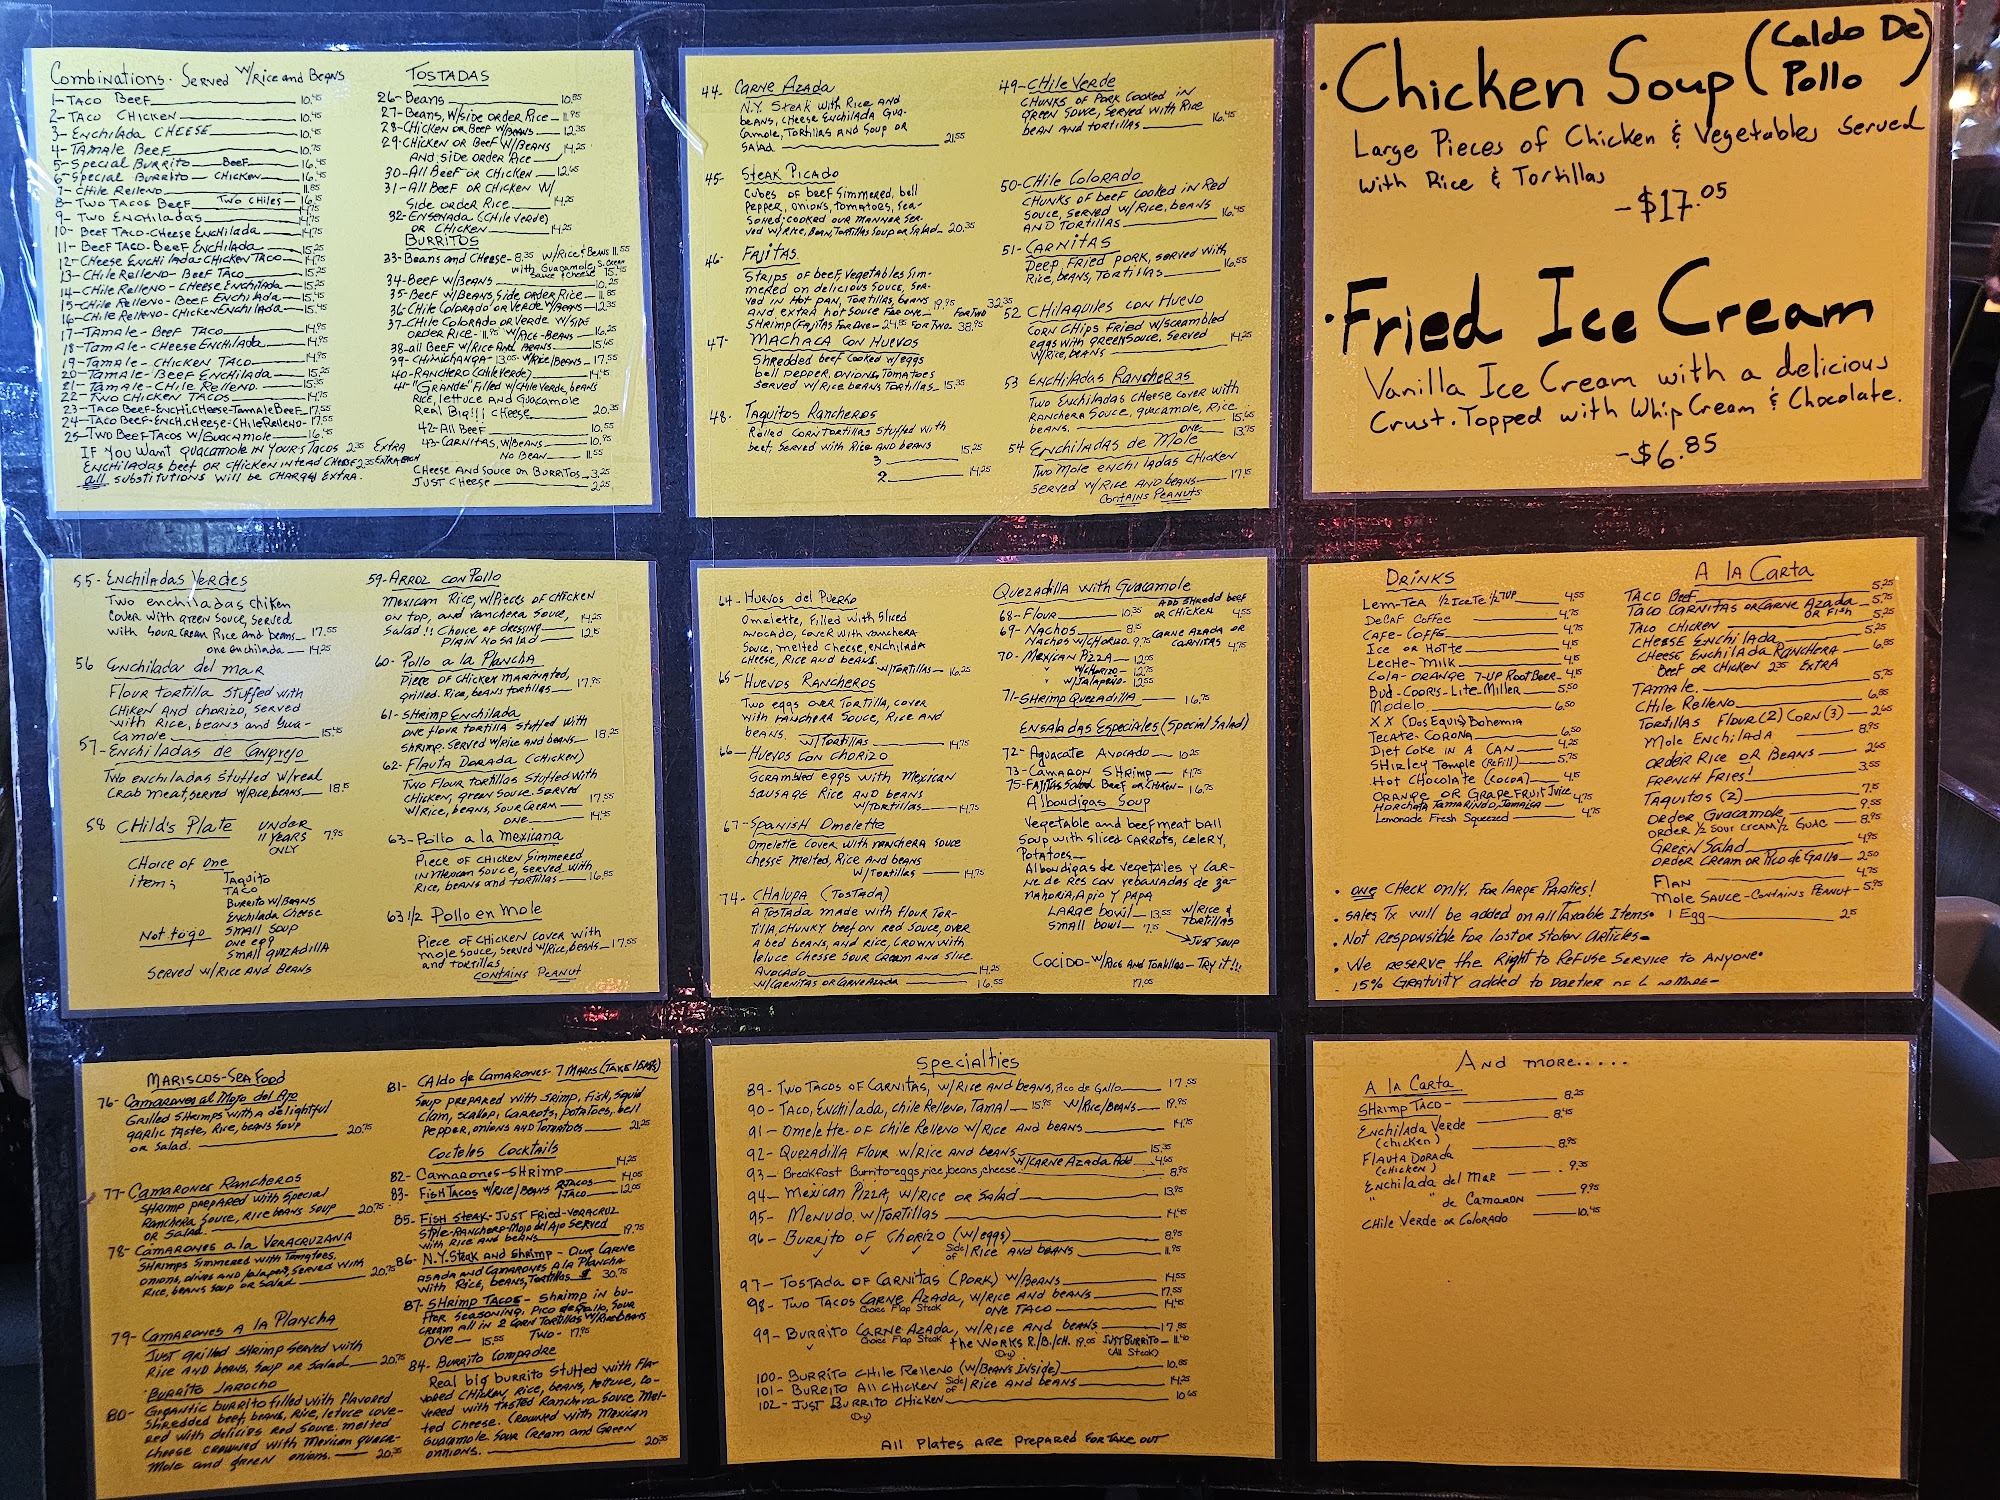 Combinations. Served W/Rice and Beans
1- Taco Beef 10.45
2- Taco Chicken 10.45
3- Enchilada Cheese 10.45
4- Tamale Beef 10.75
5- Special Burrito Beef 16.45
6- Special Burrito Chicken 16.45
7- Chile Relleno 11.85
Two Chiles 16.15
8- Two Tacos Beef 14.75
9- Two Enchiladas
10- Beef Taco-Cheese Enchilada 14.75
11- Beef Taco-Beef Enchilada 15.25
12- Cheese Enchilada-Chicken Taco 14.75
13- Chile Relleno- Beef Taco 15.25
14- Chile Relleno-Cheese Enchilada 15.25
15- Chile Relleno-Beef Enchilada 15.45
16- Chile Relleno-Chicken Enchilada 15.45
17- Tamale- Beef Taco 14.95
18- Tamale-Cheese Enchilada 14.95
19- Tamale-Chicken Taco 14.95
20- Tamale-Beef Enchilada 15.25
21- Tamale-Chile Relleno. 15.35
22- Two Chicken Tacos 14.75
23- Taco Beef-Enchi.Cheese-Tamale Beef 17.55
24- Taco Beef-Ench.cheese-Chile Relleno 17.55
25- Two Beef Tacos w/Guacamole 16.45
If You Want guacamole in Yours Tacos 2.35 Extra
Enchiladas beef or chicken intead Cheese 2.35 Extra Each
all substitutions will be charges Extra.
Tostadas
26- Beans 10.85
27- Beans, w/side order Rice 11.95
28- Chicken or Beef w/Beans 12.35
29- Chicken or Beef w/Beans
and side order Rice 14.25
30- All Beef or Chicken 12.65
31- All Beef or Chicken w/
Side order Rice 14.25
32- Ensenada (Chile Verde)
or Chicken 14.25
Burritos
33- Beans and Cheese 8.35 w/Rice & Beans 11.55
with Guacamole, S. Cream
Sauce & Cheese 15.45
34- Beef w/Beans 10.25
35- Beef w/Beans, Side order Rice 11.85
36- Chile Colorado or Verde w/Beans 12.35
37- Chile Colorado or Verde w/Side
order Rice- 11.95 w/Rice-Beans 16.25
38- all Beef w/Rice and Beans 15.65
39- Chimichanga 13.05 w/Rice/Beans 17.55
40- Ranchero (Chile Verde) 14.45
41- "Grande" Filled w/Chile Verde, beans
Rice, lettuce and Guacamole
Real Big!!! cheese 20.35
42- All Beef 10.55
43- Carnitas, w/Beans 10.95
No Bean 11.55
Cheese and Souce on Burritos 3.25
Just Cheese 2.25
44- Carne Azada
N.Y. Steak with Rice and
beans, cheese Enchilada Gua-
camole, Tortillas and Soup or
Salad. 21.55
45- Steak Picado
Cubes of beef simmered, bell
Pepper, onions, tomatoes, sea-
soned, cooked our manner ser-
ved w/Rice, Bean, Tortillas Soup or Salad 20.35
46- Fajitas
Strips of beef, vegetables sim-
mered on delicious souce, ser-
ved in Hot pan, Tortillas, beans
and extra hot souce For one 19.95 For Two 32.35
Shrimp (Fajitas For one- 24.85 For Two. 38.95
47- Machaca con Huevos
Shredded beef cooked w/eggs
bell pepper, onions, Tomatoes
Served w/Rice beans Tortillas 15.35
48- Taquitos Rancheros
Rolled Corn tortillas Stuffed with
beef, Served with Rice and beans
3 15.25
2 14.25
49- Chile Verde
Chunks of Pork Cooked in
green souce, served with Rice
bean and tortillas 16.45
50- Chile Colorado
Chunks of beef cooked in Red
Souce, served w/Rice, beans
and tortillas 16.45
51- Carnitas
Deep Fried pork, served with
Rice, beans, Tortillas 16.55
52 Chilaquiles con Huevo
Corn Chips Fried w/scrambled
eggs with green souce, served
w/Rice, beans 14.25
53 Enchiladas Rancheras
Two Enchiladas cheese cover with
ranchera souce, guacamole, Rice
beans. 15.65
one 13.75
54 Enchiladas de Mole
Two mole enchiladas chicken
served w/Rice and beans 17.15
Contains Peanuts
• Chicken Soup (Caldo De Pollo)
Large Pieces of Chicken & Vegetables Served
with Rice & Tortillas
-$17.05
• Fried Ice Cream
Vanilla Ice Cream with a delicious
Crust. Topped with Whip Cream & Chocolate.
-$6.85
55- Enchiladas Verdes
Two enchiladas chiken
cover with green souce, served
with sour cream Rice and beans 17.55
one enchilada 14.25
56 Enchilada del mar
Flour tortilla Stuffed with
chiken and chorizo, served
with Rice, beans and Gua-
camole 15.45
57- Enchiladas de Cangrejo
Two enchiladas stuffed w/real
crab meat, served w/Rice, beans 18.15
58 Child's Plate Under 11 Years Only 7.95
Choice of one
item;
Taquito
Taco
Burrito w/Beans
Enchilada Cheese
Small Soup
one egg
Small quezadilla
Not to go
Served w/Rice and Beans
59- Arroz con Pollo
Mexican Rice, w/Pieces of chicken
on top, and ranchera souce, 14.25
Salad!! Choice of dressing
Plain No Salad 12.15
60- Pollo a la Plancha
Piece of Chicken marinated,
grilled. Rice, beans tortillas 17.95
61- Shrimp Enchilada
one flour tortilla stuffed with
shrimp. served w/Rice and beans 18.25
62- Flauta Dorada (Chicken)
Two Flour tortillas Stuffed with
chicken, green souce. Served
w/Rice, beans, sour cream 17.55
one 14.45
63- Pollo a la Mexicana
Piece of chicken simmered
in Mexican Souce, served with
Rice, beans and tortillas 16.85
63 1/2 Pollo en Mole
Piece of Chicken cover with
mole souce, served w/Rice, beans 17.55
and tortillas
Contains Peanut
64- Huevos del Puerto
Omelette, filled with Sliced
avocado, cover with ranchera
Souce, melted cheese, enchilada
Cheese, Rice and beans.
w/tortillas 16.25
65- Huevos Rancheros
Two eggs over tortilla, cover
with ranchera souce, Rice and
beans. w/Tortillas 14.75
66- Huevos con Chorizo
Scrambled eggs with Mexican
Sausage Rice and beans
w/tortillas 14.75
67- Spanish Omelette
Omelette cover with ranchera souce
chesse melted, Rice and beans
w/Tortillas 14.75
74- Chalupa (Tostada)
A Tostada made with flour tor-
tilla, chunky beef on red souce, over
a bed beans, and rice, crown with
letuce chesse sour cream and slice
Avocado 14.25
w/carnitas or Carne Azada 16.55
Quezadilla with Guacamole
68- Flour 10.35 Add Shredd beef or Chicken 4.55
69- Nachos 8.15
Nachos w/Chorizo 9.75 Carne Azada or Carnitas 4.75
70- Mexican Pizza 12.05
" w/Chorizo 12.75
" w/Jalapeño 12.55
71- Shrimp Quezadilla 16.75
Ensaladas Especiales (Special Salad)
72- Aguacate Avocado 10.25
73- Camaron Shrimp 14.75
75- Fajitas Salad Beef or Chicken 16.75
Albondigas Soup
Vegetable and beef meat ball
Soup with sliced carrots, celery,
Potatoes
Albondigas de vegetales y car-
ne de res con rebanadas de za-
nahoria, Apio y papa
Large bowl 13.55 w/Rice & Tortillas
Small bowl 7.35
→ Just Soup
Cocido- w/Rice and Tortillas - Try it!!!
17.05
Drinks
Lem-Tea 1/2 Ice Te 1/2 7UP 4.55
Decaf Coffee 4.75
Cafe-Coffe 4.75
Ice or Hot te 4.15
Leche- Milk 4.15
Cola-Orange 7-up Root Beer 4.15
Bud-Coors-Lite-Miller 5.50
Modelo 6.50
XX (Dos Equis) Bohemia
Tecate-Corona 6.50
Diet Coke in a can 4.25
Shirley Temple (Refill) 5.75
Hot Chocolate (Cocoa) 4.15
Orange or Grape Fruit Juice 4.75
Horchata, Tamarindo, Jamaica
Lemonade Fresh Squeezed 4.75
A la Carta
Taco Beef 5.25
Taco Carnitas or Carne Azada 5.75
or Fish
Taco Chicken 5.25
Cheese Enchilada 5.25
Cheese Enchilada Ranchera 6.85
Beef or Chicken 2.35 Extra
Tamale. 5.75
Chile Relleno 6.85
Tortillas Flour (2) Corn (3) 2.65
Mole Enchilada 8.95
Order Rice or Beans 2.65
French Fries! 3.55
Taquitos (2) 7.15
Order Guacamole 9.55
Order 1/2 Sour cream 1/2 Guac 8.95
Green Salad 4.95
Order Cream or Pico de Gallo 2.50
Flan 4.75
Mole Sauce-Contains Peanut 5.95
1 Egg 2.15
• one check only, for large Parties!
• Sales Tx will be added on all Taxable Items•
• Not Responsible for lost or Stolen articles-
• We reserve the Right to Refuse Service to Anyone•
• 15% Gratuity added to Partier of 6 or More-
Mariscos-Sea Food
76- Camarones al Mojo del Ajo
Grilled Shrimps with a delightful
garlic taste, Rice, beans soup
or Salad. 20.75
77- Camarones Rancheros
Shrimp prepared with Special
Ranchera Souce, Rice beans soup
or Salad. 20.75
78- Camarones a la Veracruzana
Shrimps simmered with Tomatoes,
onions, olives and jalapeño, served with
Rice, beans soup or Salad 20.75
79- Camarones a la Plancha
Just grilled Shrimp Served with
Rice and beans, soup or salad 20.75
Burrito Jarocho
80- Gigantic burrito filled with flavored
Shredded beef, beans, Rice, letuce cove-
red with delicios red souce. melted
cheese crowned with Mexican guaca-
mole and green onions. 20.35
81- Caldo de Camarones- 7 Maris (Take 15 Min)
Soup prepared with Srimp, fish, squid
clam, scalop, carrots, potatoes, bell
pepper, onions and tomatoes 21.25
Cocteles Cocktails
82- Camarones-Shrimp 14.25
83- Fish Tacos w/Rice/Beans 2 Tacos 14.05
1 Taco 12.05
85- Fish Steak-Just Fried-Veracruz
Style-Ranchero-Mojo del Ajo Served
with Rice and beans 19.75
86- N.Y. Steak and Shrimp- Our Carne
asada and Camarones a la Plancha
with Rice, beans, Tortillas $ 30.75
87- Shrimp Tacos- Shrimp in bu-
tter seasoning, pico de gallo, sour
cream all in 2 corn tortillas w/Rice Beans
One- 15.55 Two- 17.95
84- Burrito Compadre
Real big burrito Stuffed with Fla-
vored Chicken, rice, beans, lettuce, co-
vered with tasted Ranchera Souce Mel-
ted Cheese. Crowned with Mexican
Guacamole Sour Cream and Green
onnions. 20.35
Specialties
89- Two Tacos of Carnitas, w/Rice and beans, Pico de Gallo 17.55
90- Taco, Enchilada, Chile Relleno, Tamal 15.95 w/Rice/Beans 19.95
91- Omelette-of Chile Relleno w/Rice and beans 14.75
92- Quezadilla Flour w/Rice and beans 15.35
w/Carne Azada Add 4.65
93- Breakfast Burrito-eggs, rice, beans, cheese 8.95
94- Mexican Pizza, w/Rice or Salad 13.95
95- Menudo. w/Tortillas 14.45
96- Burrito of Chorizo (w/eggs) 8.95
Side of/Rice and beans 11.95
97- Tostada of Carnitas (Pork) w/Beans 14.55
98- Two Tacos Carne Azada, w/Rice and beans 17.55
Choice Flap Steak One Taco 14.45
99- Burrito Carne Azada, w/Rice and beans 17.85
Choice Flap Steak the Works R./B./CH. 19.05 Just Burrito 11.40
(Dry) (All Steak)
100- Burrito Chile Relleno (w/Beans Inside) 10.85
101- Burrito All Chicken Side of/Rice and beans 14.25
102- Just Burrito Chicken 10.65
(Dry)
All Plates are Prepared for Take Out
And more.....
A la Carta
Shrimp Taco- 8.25
Enchilada Verde 8.45
(Chicken)
Flauta Dorada 8.95
(Chicken)
Enchilada del Mar 9.35
" " de Camaron 9.95
Chile Verde or Colorado 10.45